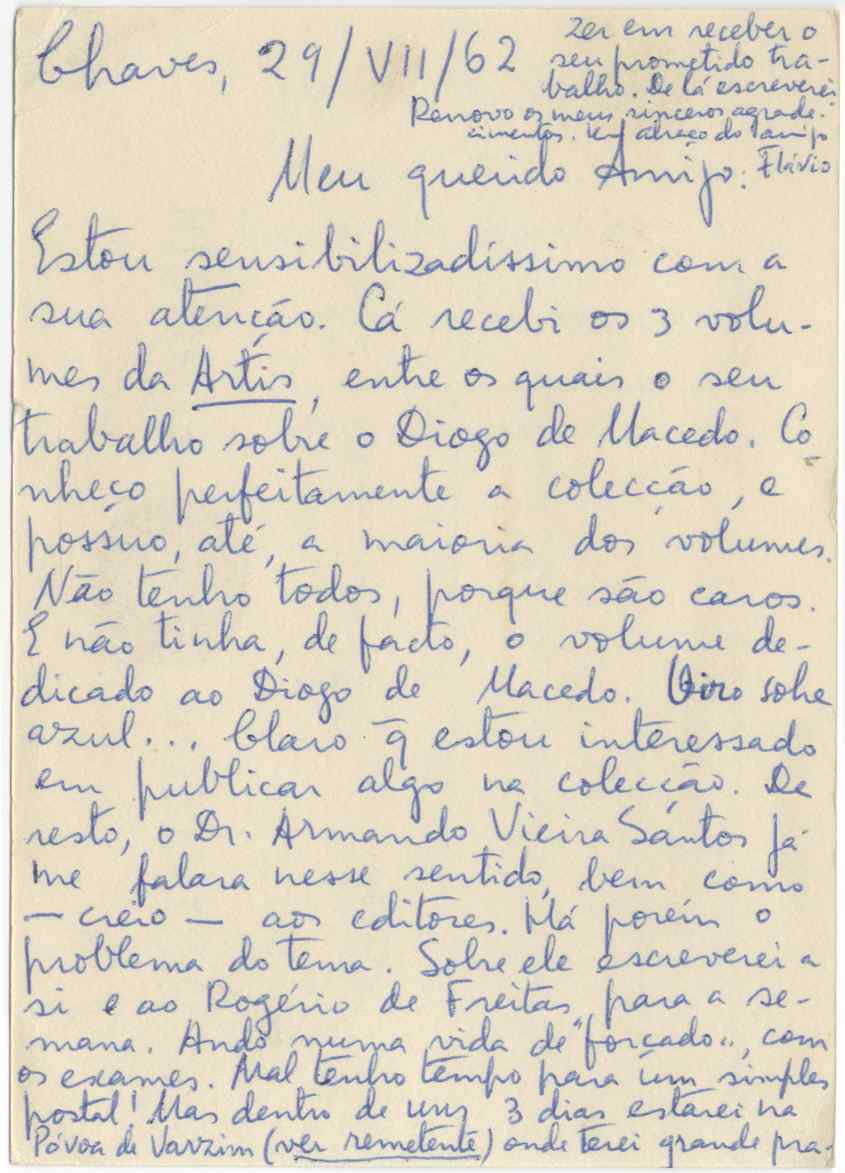 Chaves, 29/VII/62
Meu querido Amigo:
Estou sensibilizadíssimo com a
sua atenção. Cá recebi os 3 volu-
mes da Artis, entre os quais o seu
trabalho sobre o Diogo de Macedo. Co
nheço perfeitamente a colecção, e
possuo, até, a maioria dos volumes.
Não tenho todos, porque são caros.
E não tinha, de facto, o volume de-
dicado ao Diogo de Macedo. Ouro sobre
azul... Claro q̄ estou interessado
em publicar algo na colecção. De
resto, o Dr. Armando Vieira Santos já
me falara nesse sentido, bem como
— creio — aos editores. Há porém o
problema do tema. Sobre ele escreverei a
si e ao Rogério de Freitas, para a se-
mana. Ando numa vida de "forçado", com
os exames. Mal tenho tempo para um simples
postal! Mas dentro de uns 3 dias estarei na
Póvoa de Varzim (ver remetente) onde terei grande pra-
zer em receber o
seu prometido tra-
balho. De lá escreverei
Renovo os meus sinceros agrade-
cimentos. Um abraço do amigo
Flávio